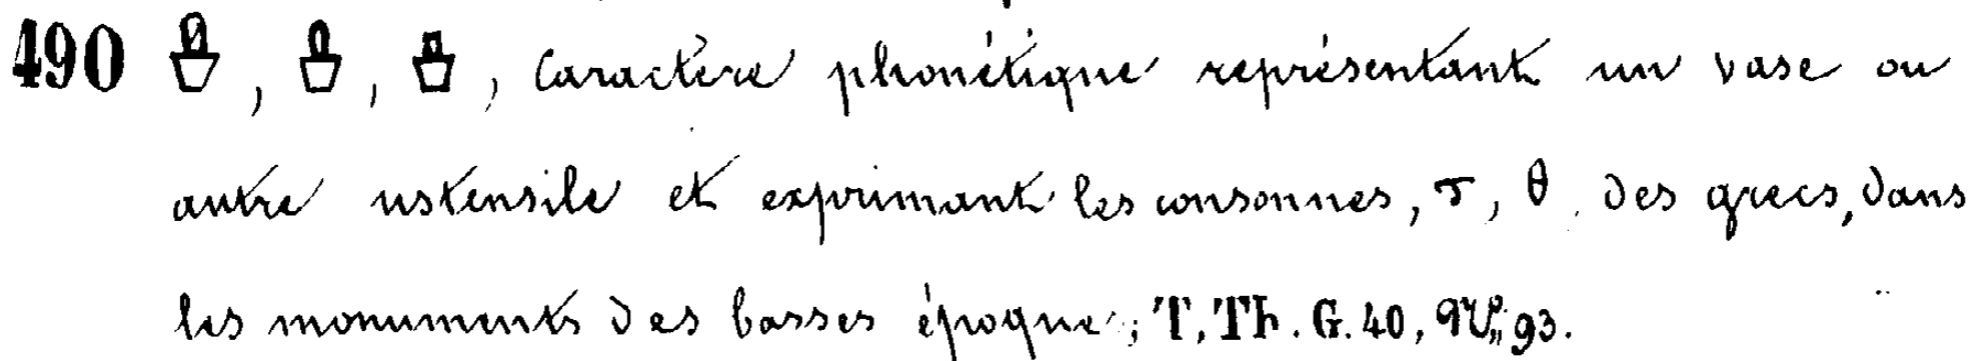 490 , , , Caractère phonétique représentant un vase ou
autre ustensile et exprimant les consonnes, τ, θ. des grecs, dans
les monuments des basses époque; T, Th. G. 40, N° 93.